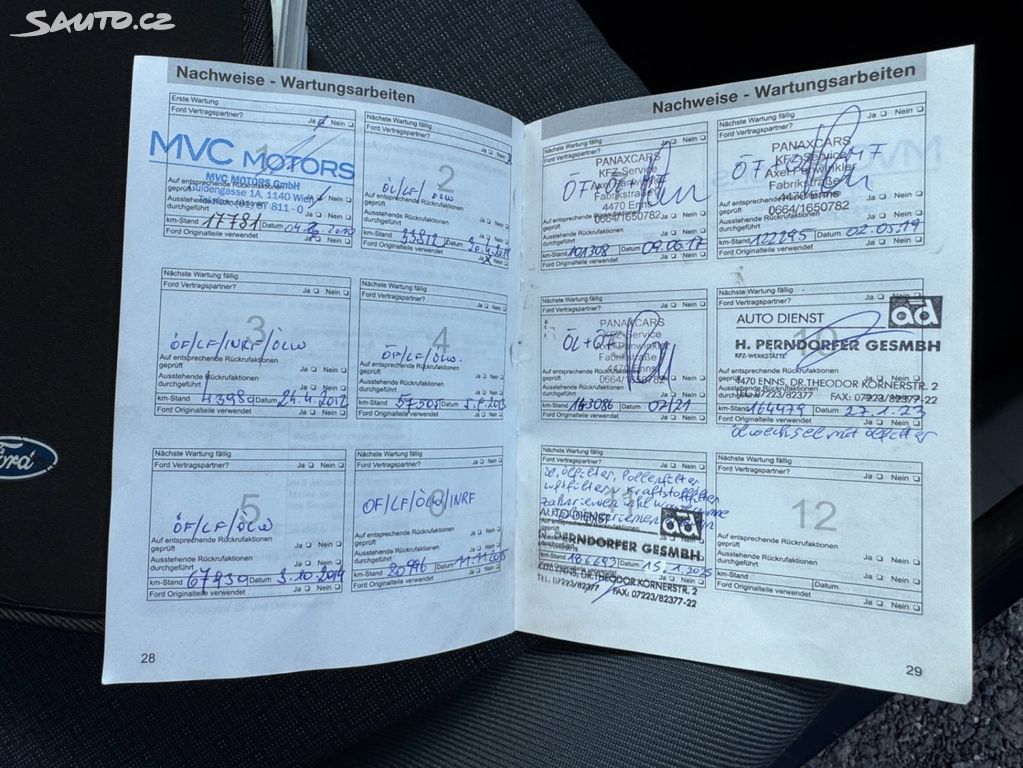 SAUTO.CZ
Nachweise - Wartungsarbeiten
Erste Wartung
Ford Vertragspartner? Ja Nein
1
MVC MOTORS
MVC MOTORS GmbH
1A, 1140 Wien
Auf entsprechende Rückrufaktionen
geprüft
811-0
Ausstehende Rückrufaktionen Ja Nein
durchgeführt
km-Stand 17781 Datum
Ford Originalteile verwendet Ja Nein
Nächste Wartung fällig
Ford Vertragspartner? Ja Nein
2
ÖL/LF/ÖLW
Auf entsprechende Rückrufaktionen
geprüft Ja Nein
Ausstehende Rückrufaktionen
durchgeführt Ja Nein
km-Stand 33812 Datum
Ford Originalteile verwendet Ja Nein
Nächste Wartung fällig
Ford Vertragspartner? Ja Nein
3
ÖF/LF/INRF/ÖLW
Auf entsprechende Rückrufaktionen
geprüft Ja Nein
Ausstehende Rückrufaktionen
durchgeführt Ja Nein
km-Stand 43980 Datum 24.4.2012
Ford Originalteile verwendet Ja Nein
Nächste Wartung fällig
Ford Vertragspartner? Ja Nein
4
ÖF/LF/ÖLW.
Auf entsprechende Rückrufaktionen
geprüft Ja Nein
Ausstehende Rückrufaktionen
durchgeführt Ja Nein
km-Stand Datum
Ford Originalteile verwendet Ja Nein
Nächste Wartung fällig
Ford Vertragspartner? Ja Nein
5
ÖF/LF/ÖLW
Auf entsprechende Rückrufaktionen
geprüft Ja Nein
Ausstehende Rückrufaktionen
durchgeführt Ja Nein
km-Stand 67930 Datum 3.10.2014
Ford Originalteile verwendet Ja Nein
Nächste Wartung fällig
Ford Vertragspartner? Ja Nein
6
ÖF/LF/ÖLW/INRF
Auf entsprechende Rückrufaktionen
geprüft Ja Nein
Ausstehende Rückrufaktionen
durchgeführt Ja Nein
km-Stand Datum 11.11.2015
Ford Originalteile verwendet Ja Nein
28
Nachweise - Wartungsarbeiten
Nächste Wartung fällig
Ford Vertragspartner? Ja Nein
PANAXCARS
KFZ Service
Fabrikstraße
4470 Enns
0664/1650782
Ausstehende Rückrufaktionen
durchgeführt Ja Nein
km-Stand 101308 Datum 09.06.17
Ford Originalteile verwendet Ja Nein
Nächste Wartung fällig
Ford Vertragspartner? Ja Nein
PANAXCARS
KFZ-Service
Axel Panwinkler
Fabrikstraße
4470 Enns
0664/1650782
Ausstehende Rückrufaktionen
durchgeführt Ja Nein
km-Stand 122295 Datum 02.05.19
Ford Originalteile verwendet Ja Nein
Nächste Wartung fällig
Ford Vertragspartner? Ja Nein
PANAXCARS
KFZ-Service
ÖL+ÖF
Fabrikstraße
4470 Enns
Ausstehende Rückrufaktionen
durchgeführt Ja Nein
km-Stand 143086 Datum 07/21
Ford Originalteile verwendet Ja Nein
Nächste Wartung fällig
Ford Vertragspartner?
AUTO DIENST ad
10
H. PERNDORFER GESMBH
KFZ-WERKSTÄTTE
4470 ENNS, DR.THEODOR KÖRNERSTR. 2
TEL. 07223/82377 FAX: 07223/82377-22
durchgeführt
km-Stand 164479 Datum 27.1.23
Ford Originalteile verwendet Ja Nein
Ölwechsel mit Ölfilter
Nächste Wartung fällig
Ford Vertragspartner? Ja Nein
Öl, Ölfilter, Pollenfilter
Luftfilter, Kraftstofffilter
11
AUTO DIENST ad
H. PERNDORFER GESMBH
km-Stand 186692 Datum 15.1.2025
4470 ENNS, DR.THEODOR KÖRNERSTR. 2
TEL. 07223/82377 FAX: 07223/82377-22
Nächste Wartung fällig
Ford Vertragspartner? Ja Nein
12
Auf entsprechende Rückrufaktionen
geprüft Ja Nein
Ausstehende Rückrufaktionen
durchgeführt Ja Nein
km-Stand Datum
Ford Originalteile verwendet Ja Nein
29
Ford